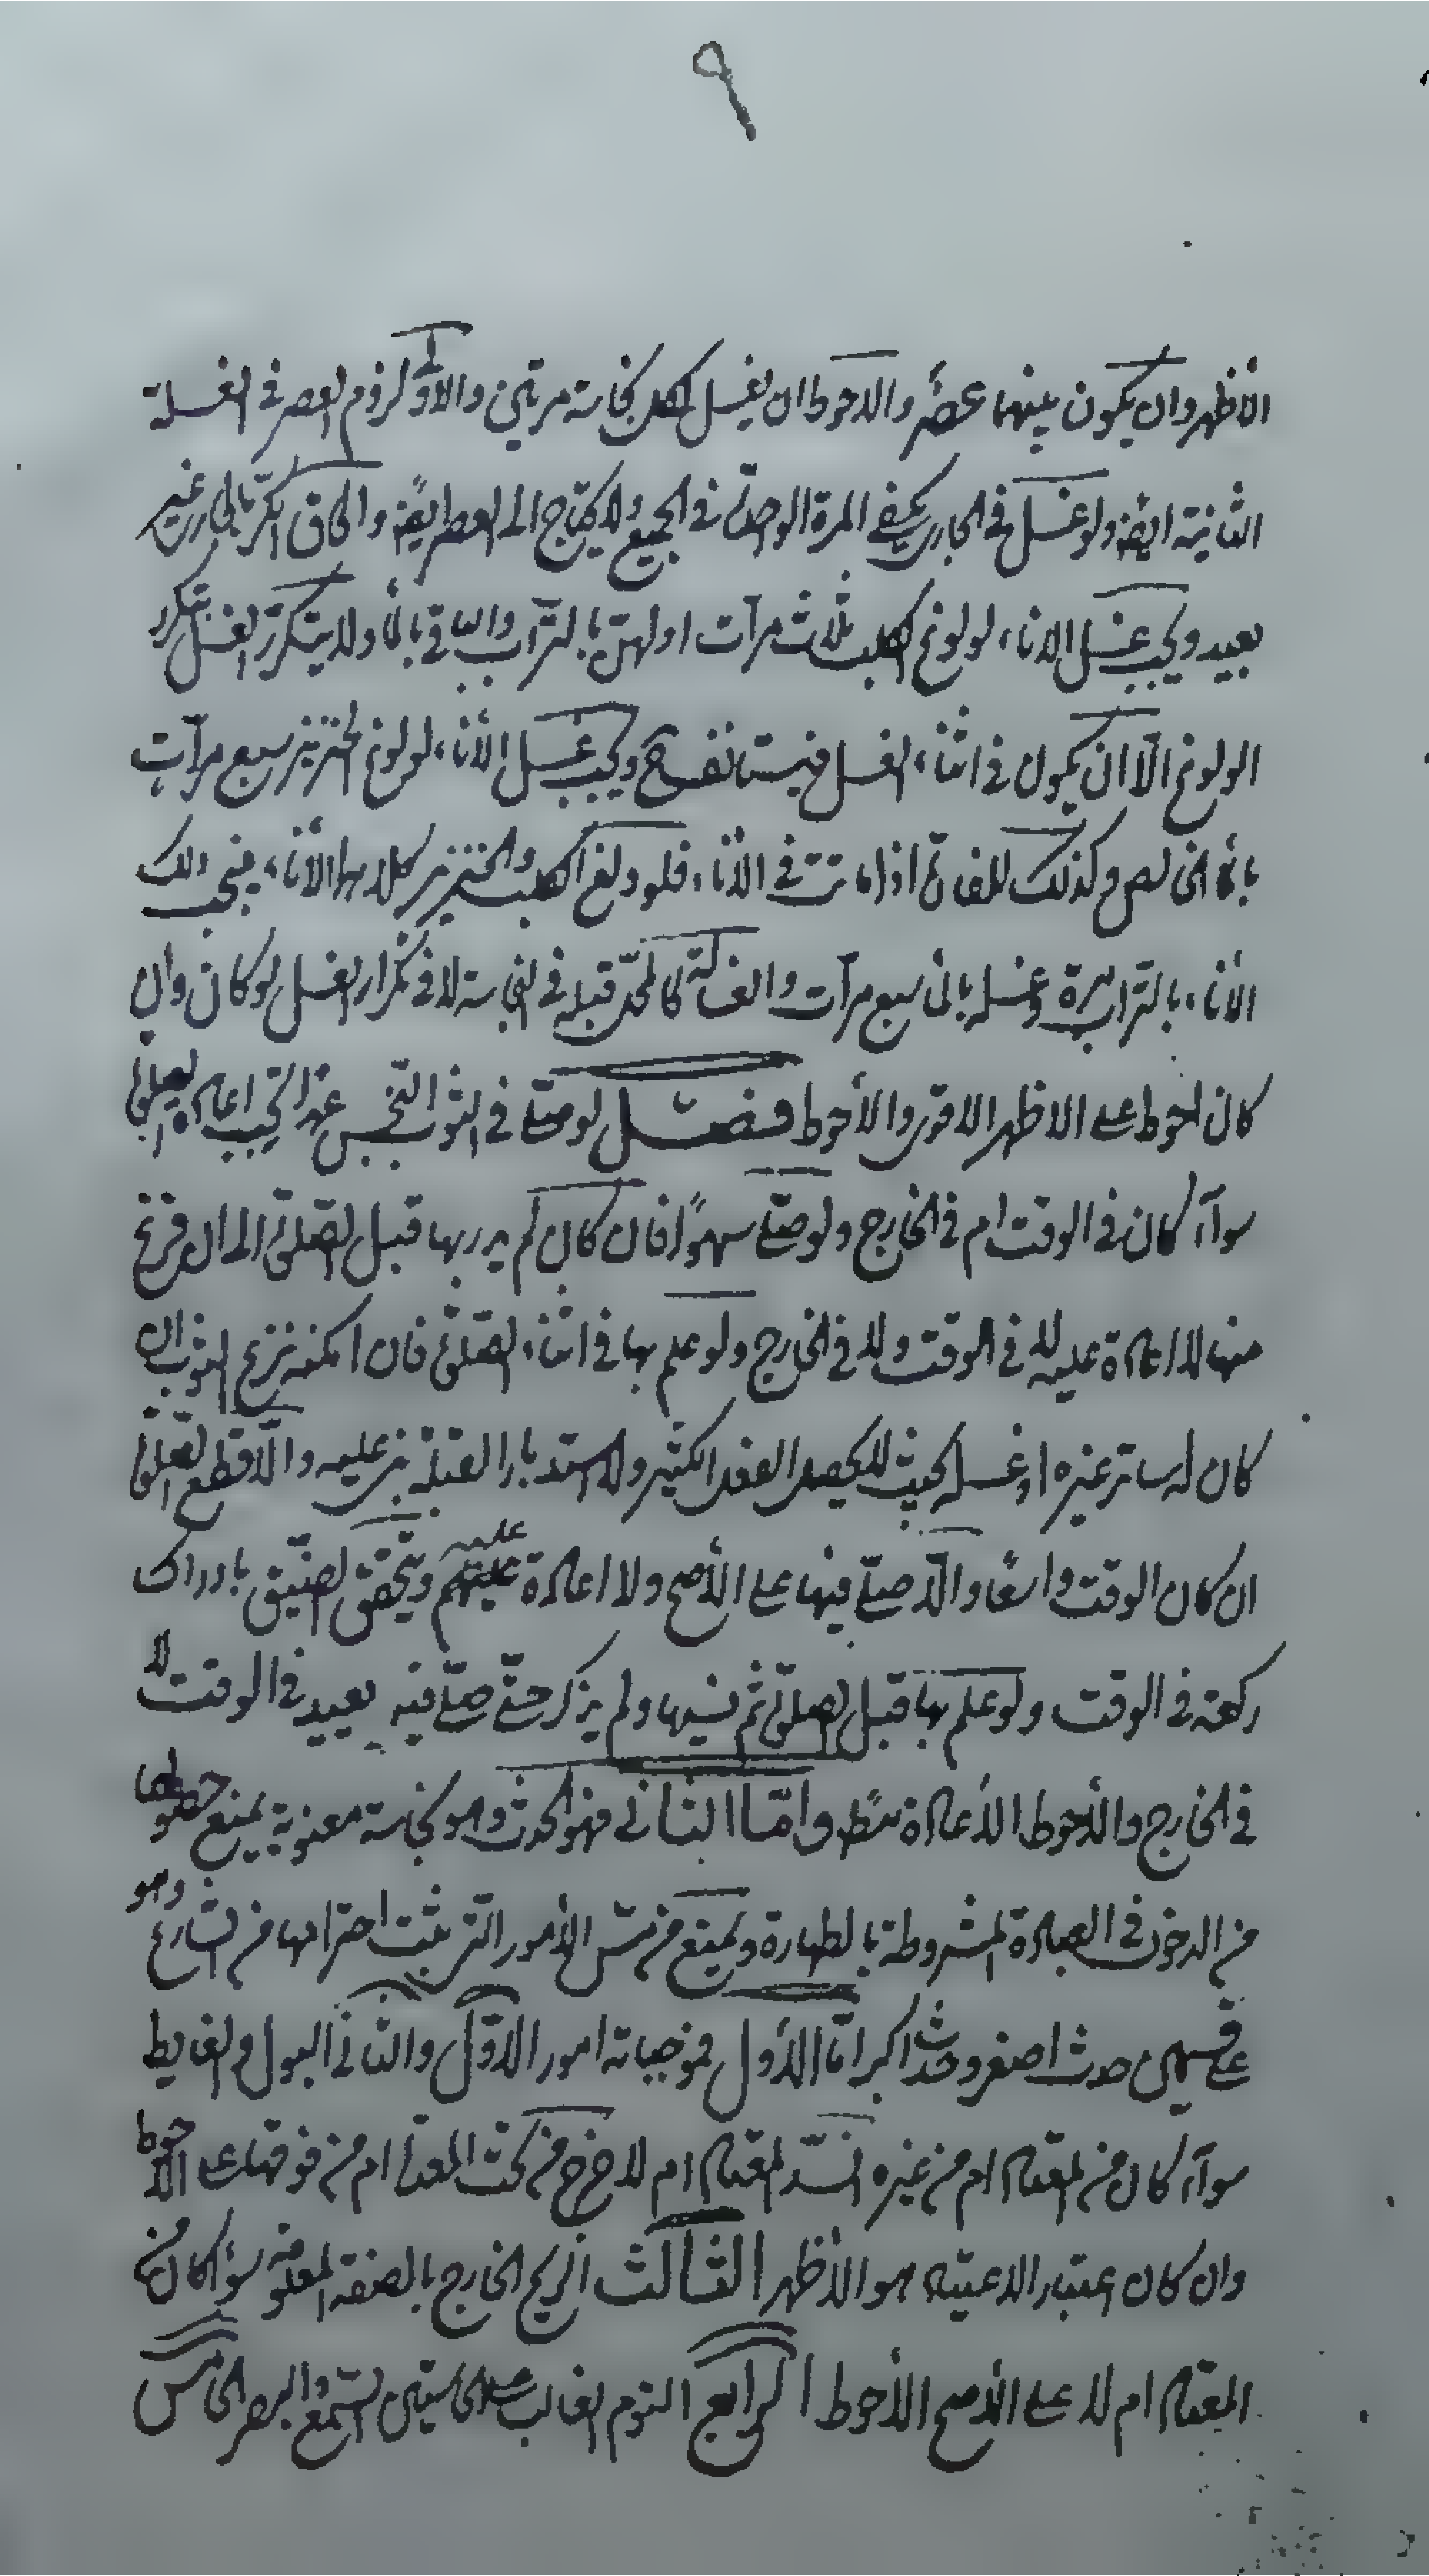 ٩
الأظهر وان يكون بينهما عصر والاحوط ان يغسل لكل نجاسة مرتين والاولى لزوم العصر في الغسلة
الثانية ايضا ولو غسل في الجاري يكفي المرة الواحدة في الجميع ولا يحتاج الى العصر ايضا والحاق الكر بالجاري غير
بعيد ويجب غسل الاناء لولوغ الكلب ثلاث مرات اولهن بالتراب والباقي بالماء ولا يتكرر الغسل بتكرر
الولوغ الّا ان يكون في اثناء الغسل فيستانف ويجب غسل الأناء لولوغ الخنزير سبع مرات
بالماء الخالص وكذلك للفارة اذا ماتت في الأناء فلو ولغ الكلب والخنزير كلاهما الأناء فيجب دلك
الأناء بالتراب مرة وغسله بالماء سبع مرات والغسالة كالمحل قبله في النجاسة لا في تكرار الغسل لو كان وان
كان احوط على الاظهر الاقوى والأحوط فصل لو صلى في الثوب النجس عمدا يجب اعادة الصلوة
سواء كان في الوقت ام في الخارج ولو صلى سهوًا فان كان لم يدر بها قبل الصلوة الى ان فرغ
منها لا اعادة عليه لا في الوقت ولا في الخارج ولو علم بها في اثناء الصلوة فان امكنه نزع الثوب ان
كان له ساتر غيره او غسله بحيث لا يحصل الفعل الكثير ولا استدبار القبلة بنى عليه والّا قطع الصلوة
ان كان الوقت واسعًا والّا صلى فيها على الأصح ولا اعادة عليه ويتحقق الضيق بادراك
ركعة في الوقت ولو علم بها قبل الصلوة ثم نسيها ولم يذكر حتى صلى فيه يعيد في الوقت لا
في الخارج والأحوط الأعادة مط وامّا الثاني فهو الحدث وهو نجاسة معنوية يمنع حصولها
من الدخول في العبادة المشروطة بالطهارة ويمنع من مسّ الأمور التي يثبت احترامها من الشارع وهو
على قسمين حدث اصغر وحدث اكبر امّا الأول فموجباته امور الاوّل والثاني البول والغايط
سواء كان من المعتاد ام من غيره انسدّ المعتاد ام لا خرج من تحت المعدة ام من فوقها على الاحوط
وان كان اعتبار الاعتياد هو الأظهر الثالث الريح الخارج بالصفة المعلومة سواء كان من
المعتاد ام لا على الأصح الأحوط الرابع النوم الغالب على الحاستين السمع والبصر الخامس